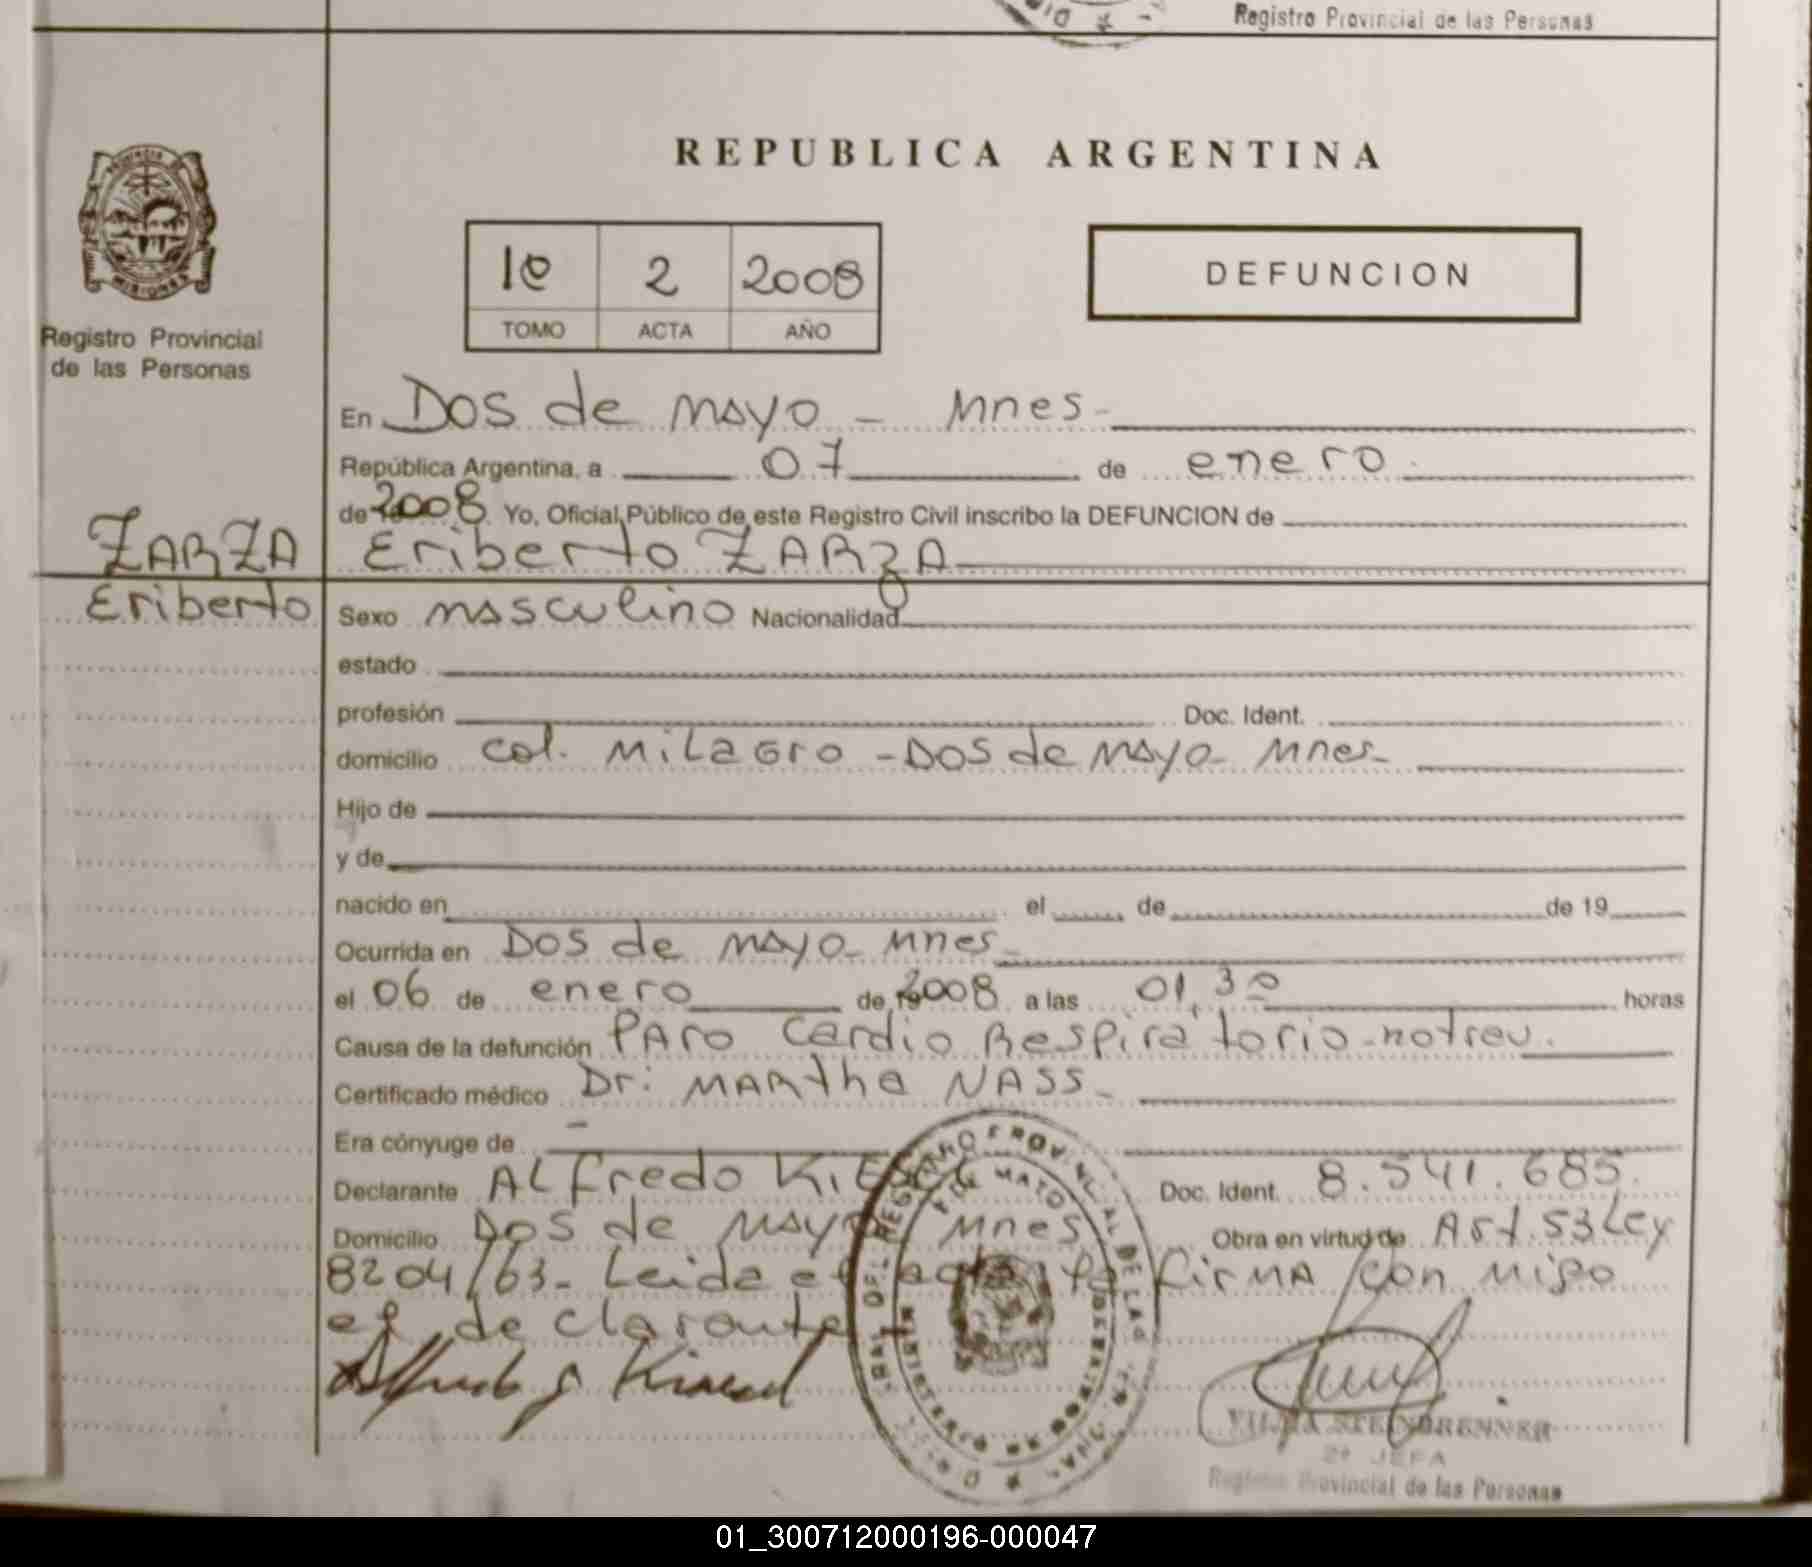 Registro Provincial de las Personas
REPUBLICA ARGENTINA
PROVINCIA DE
MISIONES
Registro Provincial
de las Personas
1º 2 2008
TOMO ACTA AÑO
DEFUNCION
En Dos de mayo - Mnes-
República Argentina, a 07 de enero
de 2008. Yo, Oficial Público de este Registro Civil inscribo la DEFUNCION de
ZARZA Eriberto ZARZA
Eriberto
Sexo masculino Nacionalidad
estado
profesión Doc. Ident.
domicilio col. Milagro - Dos de Mayo - Mnes-
Hijo de
y de
nacido en el de de 19
Ocurrida en Dos de mayo - Mnes -
el 06 de enero de 2008 a las 01,30 horas
Causa de la defunción Paro Cardio Respiratorio - notreu.
Certificado médico Dr: MARtha NASS -
Era cónyuge de -
Declarante Alfredo Doc. Ident. 8.541.685.
Domicilio Dos de Mayo Mnes Obra en virtud de Art. 53 Ley
8204/63 - Leida el acta la firma con migo
el declarante
Alfredo
VILMA STEINBRENNER
2ª JEFA
Registro Provincial de las Personas
01_300712000196-000047